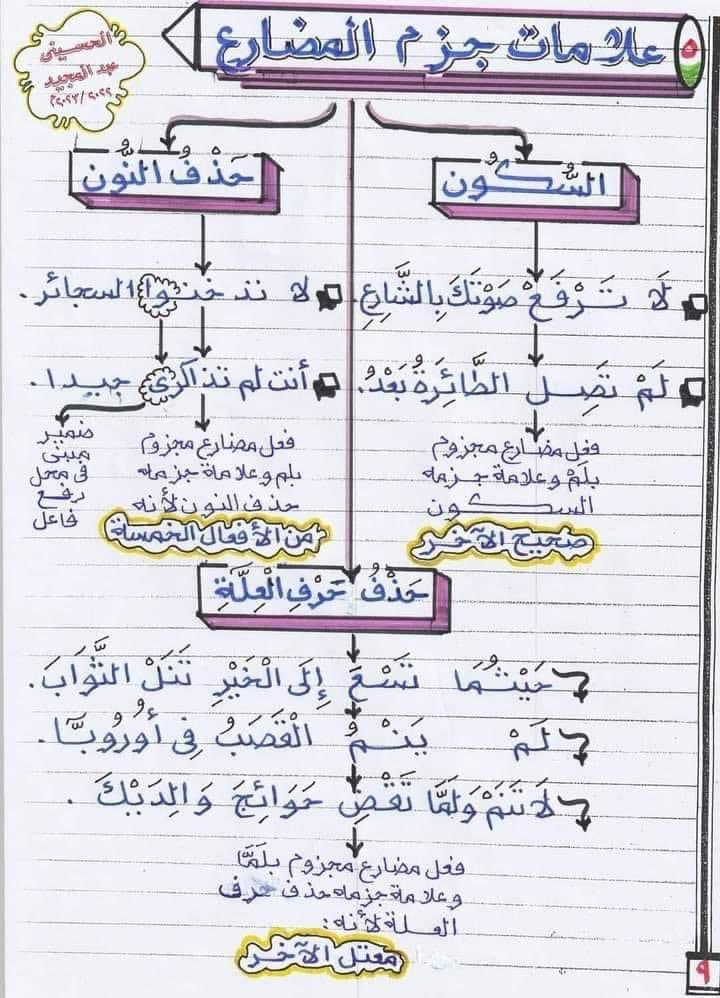 ٥ علامات جزم المضارع
الحسيني
عبد المجيد
٢٠٢٣/٢٠٢٢م
السُّكُون
لَا تَرْفَعْ صَوْتَكَ بِالشَّارِعِ.
لَمْ تَصِلِ الطَّائِرَةُ بَعْدُ.
فعل مضارع مجزوم
بلَمْ وعلامة جزمه
السكون
صحيح الآخر
حَذْفُ النُّون
لا تدخنوا السجائر.
أنت لم تذاكرى جيدا.
فعل مضارع مجزوم
بلم وعلامة جزمه
حذف النون لأنه
من الأفعال الخمسة
ضمير
مبنى
فى محل
رفع
فاعل
حَذْفُ حَرْفِ الْعِلَّةِ
حَيْثُمَا تَسْعَ إِلَى الْخَيْرِ تَنَلْ الثَّوَابَ.
لَمْ يَنْمُ الْقَصَبُ فِى أُورُوبَّا.
لَا تَنَمْ وَلَمَّا تَقْضِ حَوَائِجَ وَالِدَيْكَ.
فعل مضارع مجزوم بلَمَّا
وعلامة جزمه حذف حرف
العلة لأنه:
معتل الآخر
٩